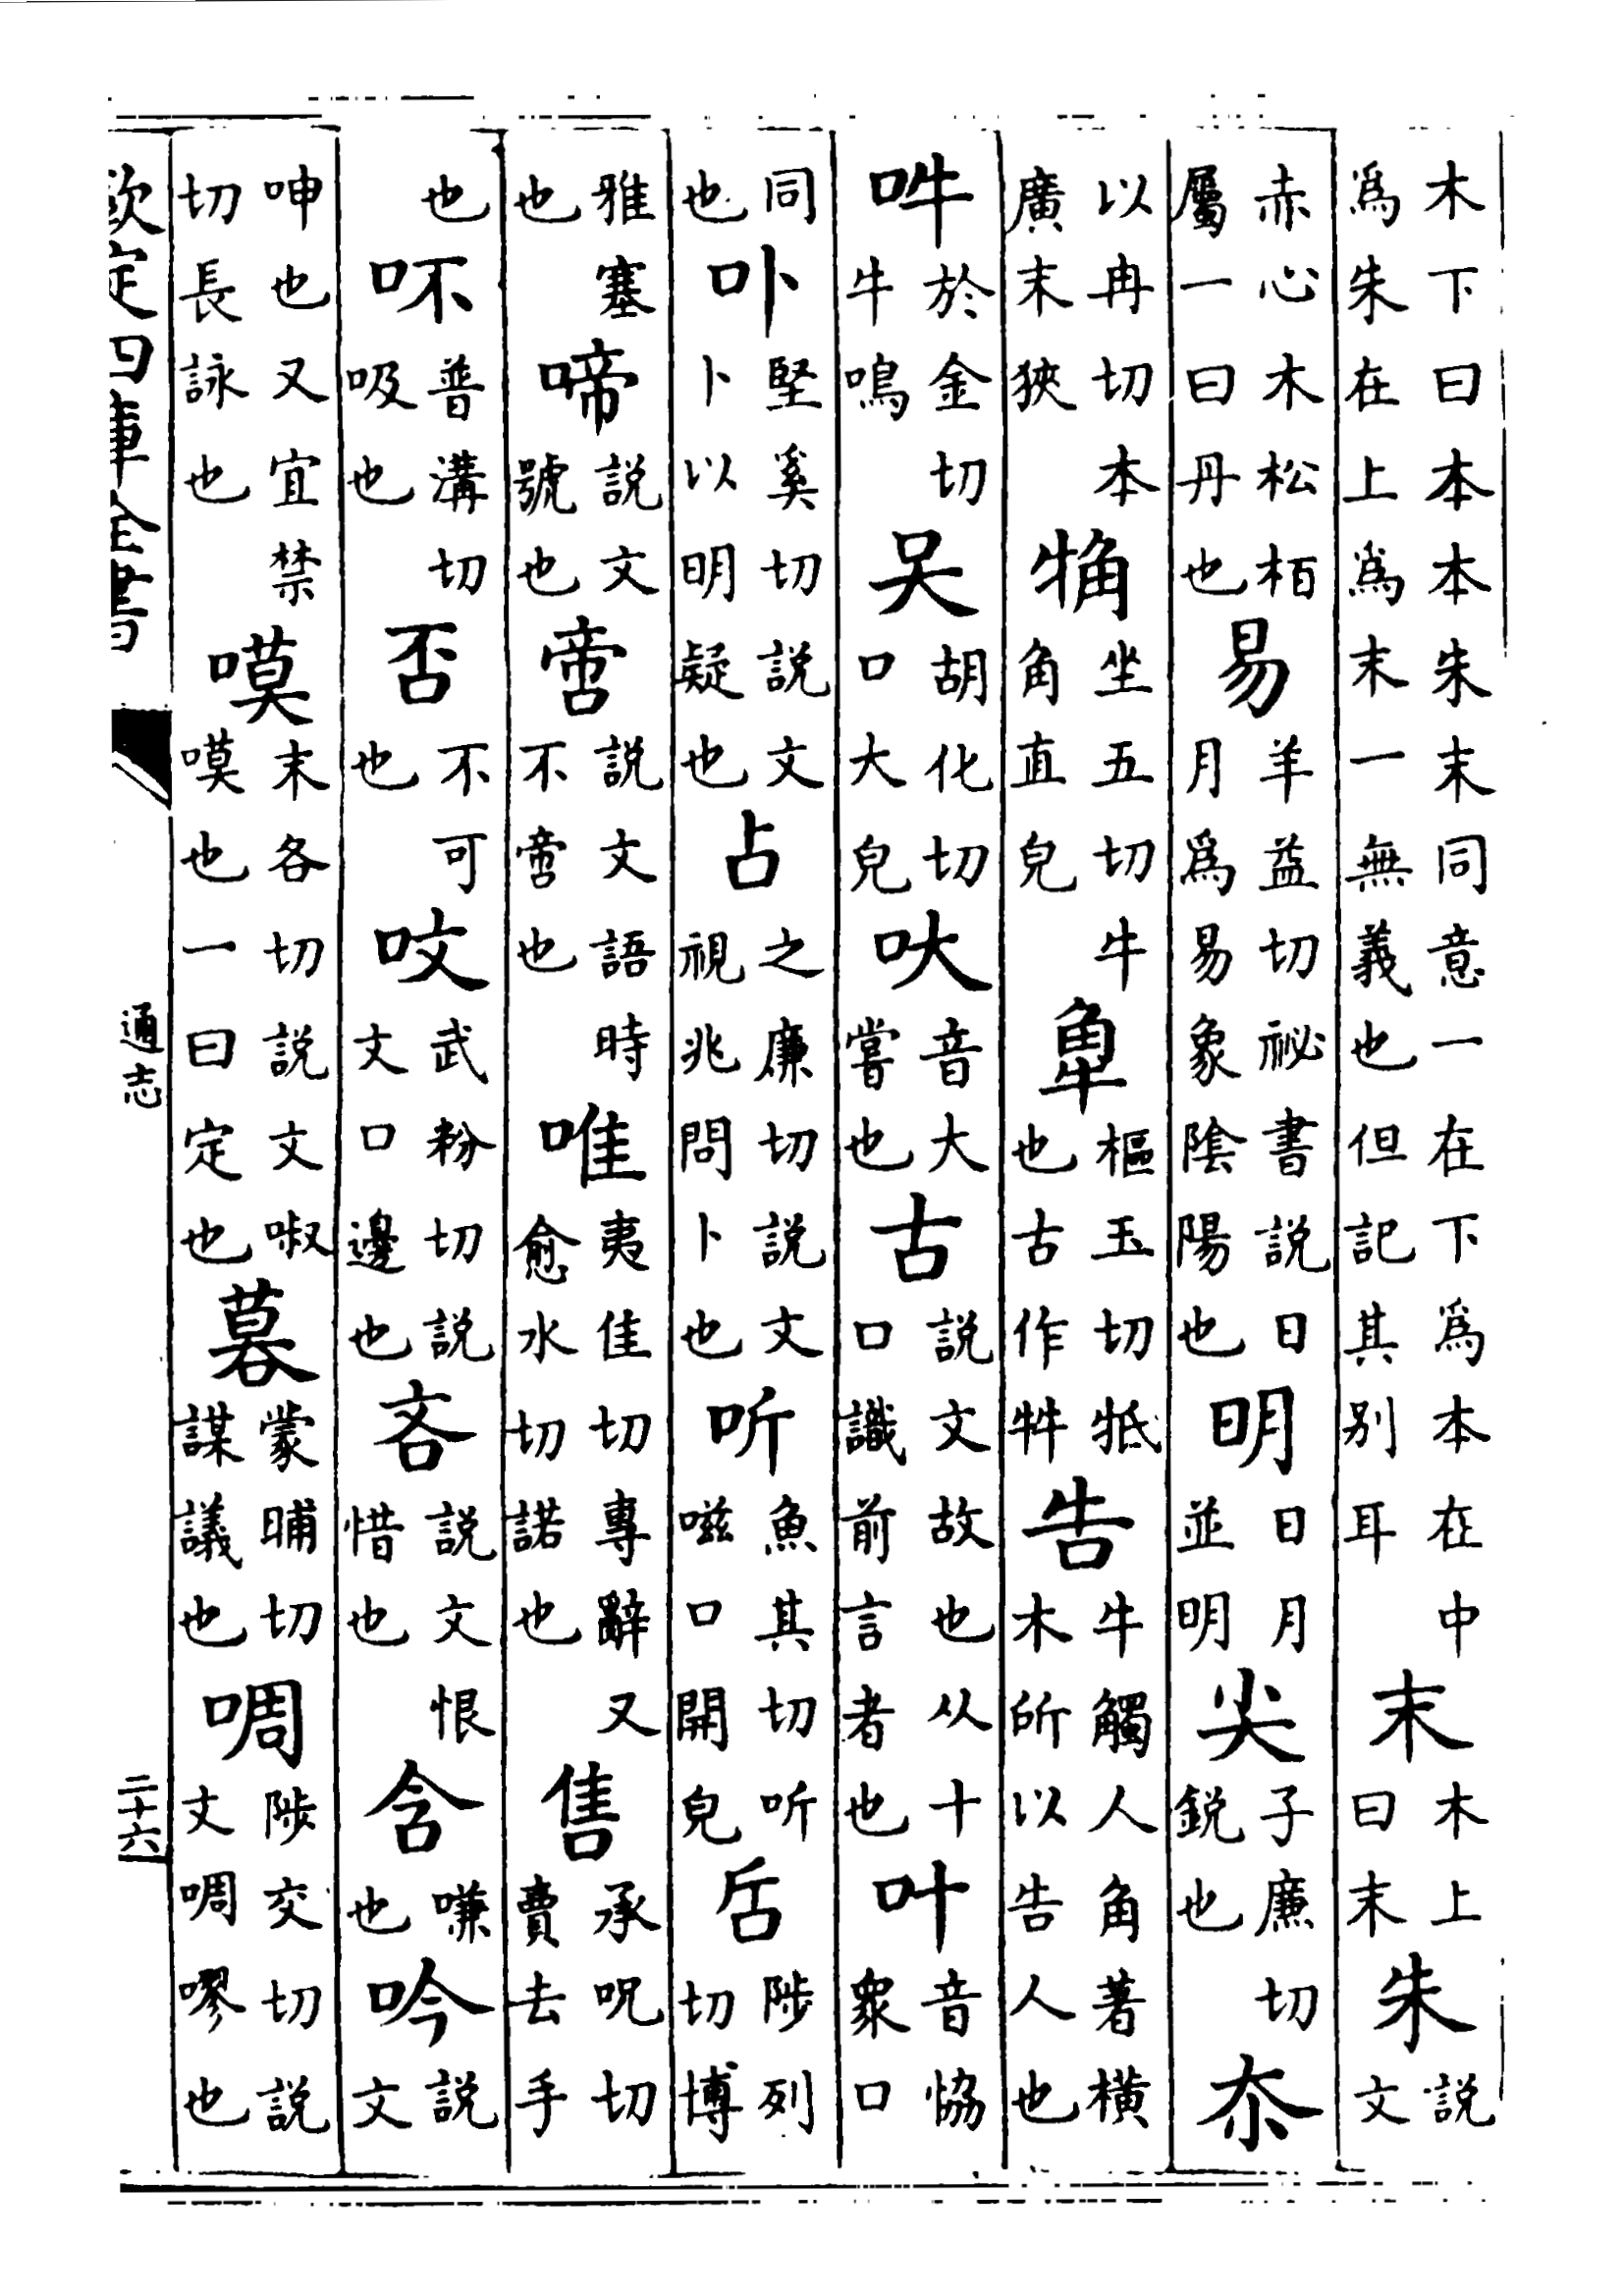 木下曰本本朱末同意一在下爲本在中爲朱在上爲末一無義也但記其别耳末木上曰末朱説文
赤心木松栢屬一曰丹也易羊益切祕書説日月爲易象陰陽也明日月並明尖子廉切鋭也夵
以冉切本廣末狹觕坐五切牛角直皃樞玉切牴也古作牪告牛觸人角著橫木所以告人也
吽於金切牛鳴吴胡化切口大皃呔音大嘗也古説文故也从十口識前言者也叶音協衆口
同也卟堅奚切説文卜以明疑也占之廉切説文視兆問卜也听魚其切听嗞口開皃陟列切博
雅塞也啼説文號也啻説文語時不啻也唯夷隹切專辭又愈水切諾也售承呪切賣去手
也吥普溝切吸也否不可也呅武粉切説文口邊也吝説文恨惜也含嗛也吟説文
呻也又宜禁切長詠也嗼末各切説文㖡嗼也一曰定也蒙晡切謀議也啁陟交切説文啁嘐也
欽定四庫全書
通志
二十六